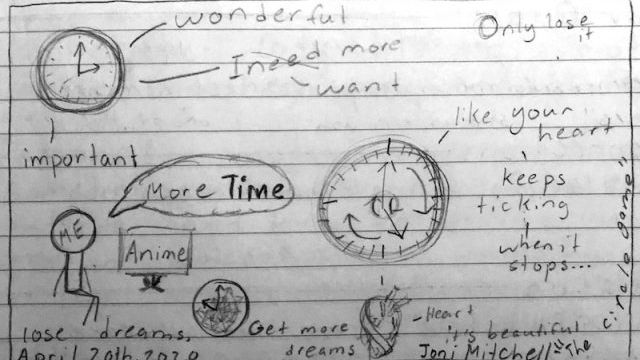 wonderful
Only lose
it
I need more
want
important
like your
heart
More Time
keeps
ticking
ME
Anime
when it
stops...
lose dreams,
Get more
dreams
Heart
it's beautiful
April 20th, 2020
Joni Mitchell "The
circle game"